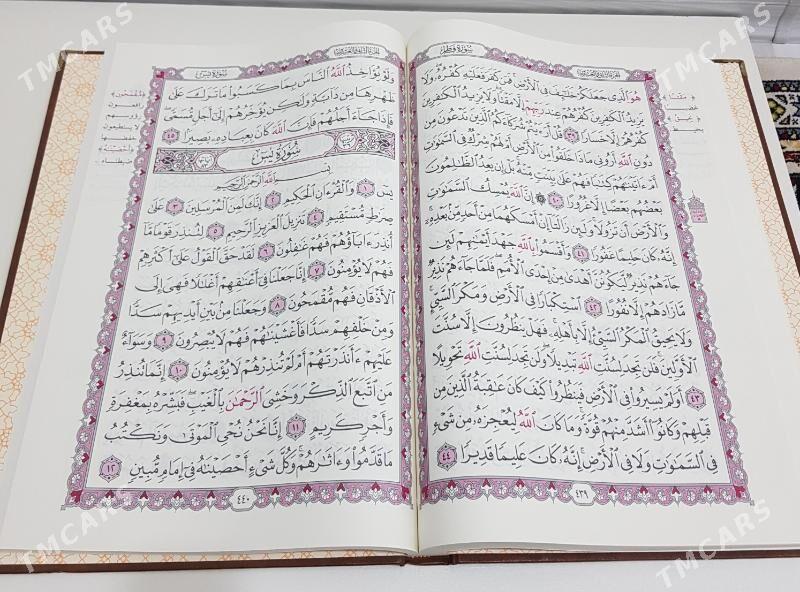 سُورَةُ فَاطِرٍ
هُوَ ٱلَّذِى جَعَلَكُمۡ خَلَٰٓئِفَ فِى ٱلۡأَرۡضِۚ فَمَن كَفَرَ فَعَلَيۡهِ كُفۡرُهُۥۖ وَلَا
يَزِيدُ ٱلۡكَٰفِرِينَ كُفۡرُهُمۡ عِندَ رَبِّهِمۡ إِلَّا مَقۡتٗاۖ وَلَا يَزِيدُ ٱلۡكَٰفِرِينَ
كُفۡرُهُمۡ إِلَّا خَسَارٗا ٣٩ قُلۡ أَرَءَيۡتُمۡ شُرَكَآءَكُمُ ٱلَّذِينَ تَدۡعُونَ مِن
دُونِ ٱللَّهِ أَرُونِى مَاذَا خَلَقُواْ مِنَ ٱلۡأَرۡضِ أَمۡ لَهُمۡ شِرۡكٞ فِى ٱلسَّمَٰوَٰتِ
أَمۡ ءَاتَيۡنَٰهُمۡ كِتَٰبٗا فَهُمۡ عَلَىٰ بَيِّنَتٖ مِّنۡهُۚ بَلۡ إِن يَعِدُ ٱلظَّٰلِمُونَ
بَعۡضُهُم بَعۡضًا إِلَّا غُرُورًا ٤٠ ۞ إِنَّ ٱللَّهَ يُمۡسِكُ ٱلسَّمَٰوَٰتِ
وَٱلۡأَرۡضَ أَن تَزُولَاۚ وَلَئِن زَالَتَآ إِنۡ أَمۡسَكَهُمَا مِنۡ أَحَدٖ مِّنۢ بَعۡدِهِۦٓۚ
إِنَّهُۥ كَانَ حَلِيمًا غَفُورٗا ٤١ وَأَقۡسَمُواْ بِٱللَّهِ جَهۡدَ أَيۡمَٰنِهِمۡ لَئِن
جَآءَهُمۡ نَذِيرٞ لَّيَكُونُنَّ أَهۡدَىٰ مِنۡ إِحۡدَى ٱلۡأُمَمِۖ فَلَمَّا جَآءَهُمۡ نَذِيرٞ
مَّا زَادَهُمۡ إِلَّا نُفُورًا ٤٢ ٱسۡتِكۡبَارٗا فِى ٱلۡأَرۡضِ وَمَكۡرَ ٱلسَّيِّيِٕۚ
وَلَا يَحِيقُ ٱلۡمَكۡرُ ٱلسَّيِّئُ إِلَّا بِأَهۡلِهِۦۚ فَهَلۡ يَنظُرُونَ إِلَّا سُنَّتَ
ٱلۡأَوَّلِينَۚ فَلَن تَجِدَ لِسُنَّتِ ٱللَّهِ تَبۡدِيلٗاۖ وَلَن تَجِدَ لِسُنَّتِ ٱللَّهِ تَحۡوِيلًا
٤٣ أَوَلَمۡ يَسِيرُواْ فِى ٱلۡأَرۡضِ فَيَنظُرُواْ كَيۡفَ كَانَ عَٰقِبَةُ ٱلَّذِينَ مِن
قَبۡلِهِمۡ وَكَانُوٓاْ أَشَدَّ مِنۡهُمۡ قُوَّةٗۚ وَمَا كَانَ ٱللَّهُ لِيُعۡجِزَهُۥ مِن شَىۡءٖ
فِى ٱلسَّمَٰوَٰتِ وَلَا فِى ٱلۡأَرۡضِۚ إِنَّهُۥ كَانَ عَلِيمٗا قَدِيرٗا ٤٤
٤٣٩
سُورَةُ يسٓ
وَلَوۡ يُؤَاخِذُ ٱللَّهُ ٱلنَّاسَ بِمَا كَسَبُواْ مَا تَرَكَ عَلَىٰ
ظَهۡرِهَا مِن دَآبَّةٖ وَلَٰكِن يُؤَخِّرُهُمۡ إِلَىٰٓ أَجَلٖ مُّسَمّٗىۖ
فَإِذَا جَآءَ أَجَلُهُمۡ فَإِنَّ ٱللَّهَ كَانَ بِعِبَادِهِۦ بَصِيرَۢا ٤٥
سُورَةُ يسٓ
بِسۡمِ ٱللَّهِ ٱلرَّحۡمَٰنِ ٱلرَّحِيمِ
يسٓ ١ وَٱلۡقُرۡءَانِ ٱلۡحَكِيمِ ٢ إِنَّكَ لَمِنَ ٱلۡمُرۡسَلِينَ ٣ عَلَىٰ
صِرَٰطٖ مُّسۡتَقِيمٖ ٤ تَنزِيلَ ٱلۡعَزِيزِ ٱلرَّحِيمِ ٥ لِتُنذِرَ قَوۡمٗا مَّآ
أُنذِرَ ءَابَآؤُهُمۡ فَهُمۡ غَٰفِلُونَ ٦ لَقَدۡ حَقَّ ٱلۡقَوۡلُ عَلَىٰٓ أَكۡثَرِهِمۡ
فَهُمۡ لَا يُؤۡمِنُونَ ٧ إِنَّا جَعَلۡنَا فِىٓ أَعۡنَٰقِهِمۡ أَغۡلَٰلٗا فَهِىَ إِلَى
ٱلۡأَذۡقَانِ فَهُم مُّقۡمَحُونَ ٨ وَجَعَلۡنَا مِنۢ بَيۡنِ أَيۡدِيهِمۡ سَدّٗا
وَمِنۡ خَلۡفِهِمۡ سَدّٗا فَأَغۡشَيۡنَٰهُمۡ فَهُمۡ لَا يُبۡصِرُونَ ٩ وَسَوَآءٌ
عَلَيۡهِمۡ ءَأَنذَرۡتَهُمۡ أَمۡ لَمۡ تُنذِرۡهُمۡ لَا يُؤۡمِنُونَ ١٠ إِنَّمَا تُنذِرُ
مَنِ ٱتَّبَعَ ٱلذِّكۡرَ وَخَشِىَ ٱلرَّحۡمَٰنَ بِٱلۡغَيۡبِۖ فَبَشِّرۡهُ بِمَغۡفِرَةٖ
وَأَجۡرٖ كَرِيمٍ ١١ إِنَّا نَحۡنُ نُحۡىِ ٱلۡمَوۡتَىٰ وَنَكۡتُبُ
مَا قَدَّمُواْ وَءَاثَٰرَهُمۡۚ وَكُلَّ شَىۡءٍ أَحۡصَيۡنَٰهُ فِىٓ إِمَامٖ مُّبِينٖ ١٢
٤٤٠
TMCARS
TMCARS
TMCARS
TMCARS